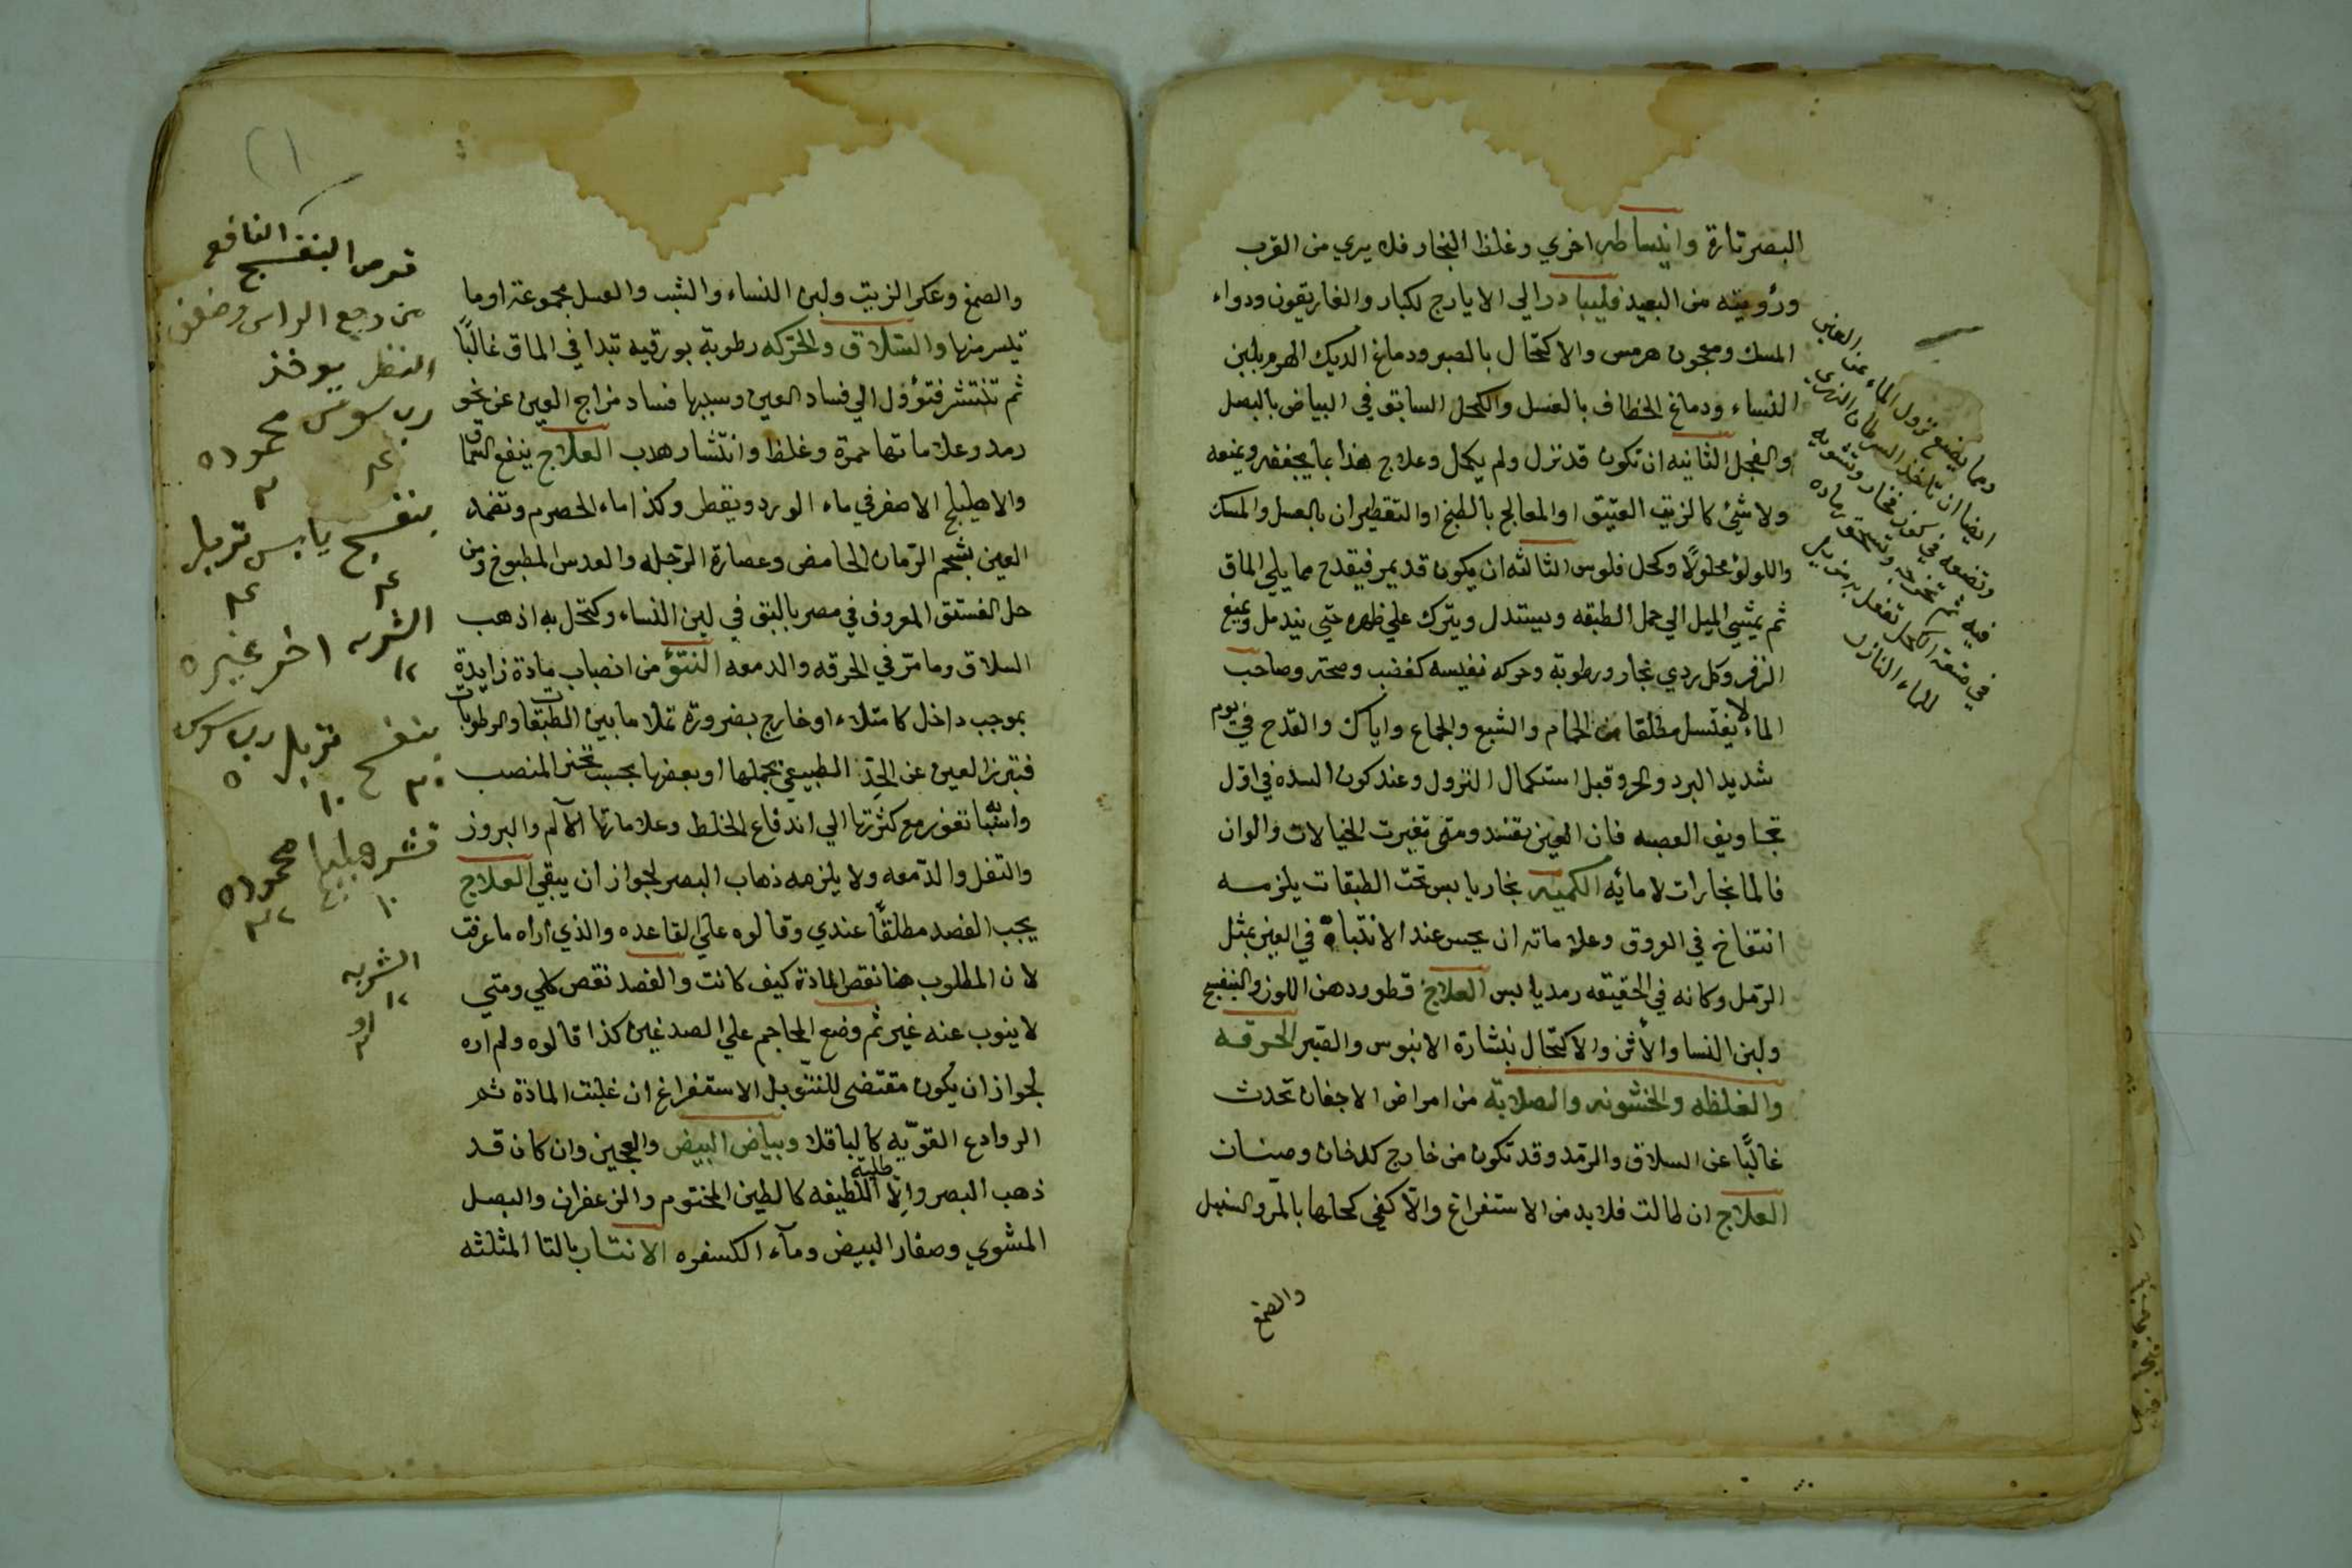 البصر تارة وانبساطه اخري وغلظ البخار فلا يري من القرب
ورؤيته من البعيد فليبادر الي الايارج لكبار والغاريقون ودواء
المسك ومعجون هرمس والاكتحال بالصبر ودماغ الديك الهرم بلبن
النساء ودماغ الخطاف بالعسل والكحل السابق في البياض بالبصل
والفجل الثانيه ان تكون قد نزل ولم يكمل وعلاج هذا بما يجففه ويمنعه
ولا شئ كالزيت العتيق او المعالج بالطبخ او التقطير ان بالعسل والمسك
واللولؤ محلولًا وكحل فلوس الثالثه ان يكون قد يمر فيقدح مما يلي الماق
ثم يمشي الميل الي حمل الطبقه ويستدل ويترك علي ظهره حتي يندمل ويمنع
الزفر وكل ردي بخار ورطوبة وحركه نفيسه كغضب وصحته وصاحب
الماء لا يغتسل مطلقا من الحمام والشبع والجماع واياك والقدح في يوم
شديد البرد والحر وقبل استكمال النزول وعند كون السده في اول
تجاويف العصبه فان العين تفسد ومتي تغيرت الخيالات والوان
فالما بخارات لا مائه الكمنه بخار يابس تحت الطبقات يلزمه
انتفاخ في العروق وعلاماته ان يحس عند الانتباه في العين بمثل
الرمل وكانه في الحقيقه رمد يابس العلاج قطور دهن اللوز والبنفسج
ولبن النسا والأتن والاكتحال بنشارة الابنوس والصبر الحرقه
والغلظه والخشونه والصلابة من امراض الاجفان تحدث
غالبًا عن السلاق والرمد وقد تكون من خارج كدخان وصنان
العلاج ان طالت فلا بد من الاستفراغ والّا كفي كحلها بالمر والسنبل
والصمغ
ومما يضع نزول الماء عن العين
ايضا ان تاخذ السرطان النهري
وتضعه في كوز فخار وتشويه
فيه ثم تخرجه وتسحق رماده
في صنعة اكحل تفعل به من يريد
للماء النازل
والصمغ وعكر الزيت ولبن النساء والشب والعسل مجموعة او ما
تيسر منها والسّلاق والحركه رطوبة بورقيه تبدا في الماق غالبًا
ثم تنتشر فتؤول الي فساد العين وسببها فساد مزاج العين عن نحو
رمد وعلاماتها حمرة وغلظ وانتشار هدب العلاج ينفع السماق
والاهليلج الاصفر في ماء الورد ويقطر وكذا ماء الحصرم وتضمد
العين بشحم الرّمان الحامض وعصارة الرّجله والعدس المطبوخ ومن
حل الفستق المعروف في مصر بالبنق في لبن النساء وكتحل به اذهب
السلاق وما مرّ في الحرقه والدمعه النتؤ من انصباب مادة زايدة
بموجب داخل كامتلاء او خارج بضرورة تملا ما بين الطبقات والرطوبات
فتبرز العين عن الحدّ الطبيعي بجملها او بعضها بحسب تحيز المنصب
واسبابها تغور مع كثرتها الي اندفاع الخلط وعلاماتها الآلم والبروز
والثقل والدّمعه ولا يلزمه ذهاب البصر لجواز ان يبقي العلاج
يجب الفصد مطلقًا عندي وقالوه علي القاعده والذي اراه ما عرفت
لان المطلوب هنا نقص المادة كيف كانت والفصد نقص كلي ومتي
لا ينوب عنه غير ثم وضع المحاجم علي الصدغين كذا قالوه ولم اره
لجواز ان يكون مقتضي للنتو بل الاستفراغ ان غلبت المادة ثم
الروادع القويّه كالباقلا وبياض البيض والعجين وان كان قد
ذهب البصر والّا طلبة اللطيفه كالطين المختوم والزعفران والبصل
المشوي وصفار البيض ومآء الكسفره الانتثار بالتا المثلثه
قرص البنفسج النافع
من وجع الراس وضعف
النظر يوخذ
رب سوس محموده
بنفسج يابس تربد
الشربه اخر غيره
بنفسج تربد رب سوس
٥ ١٠ ٣٠
قشر هليلج محموده
١٠
الشربه
١٢